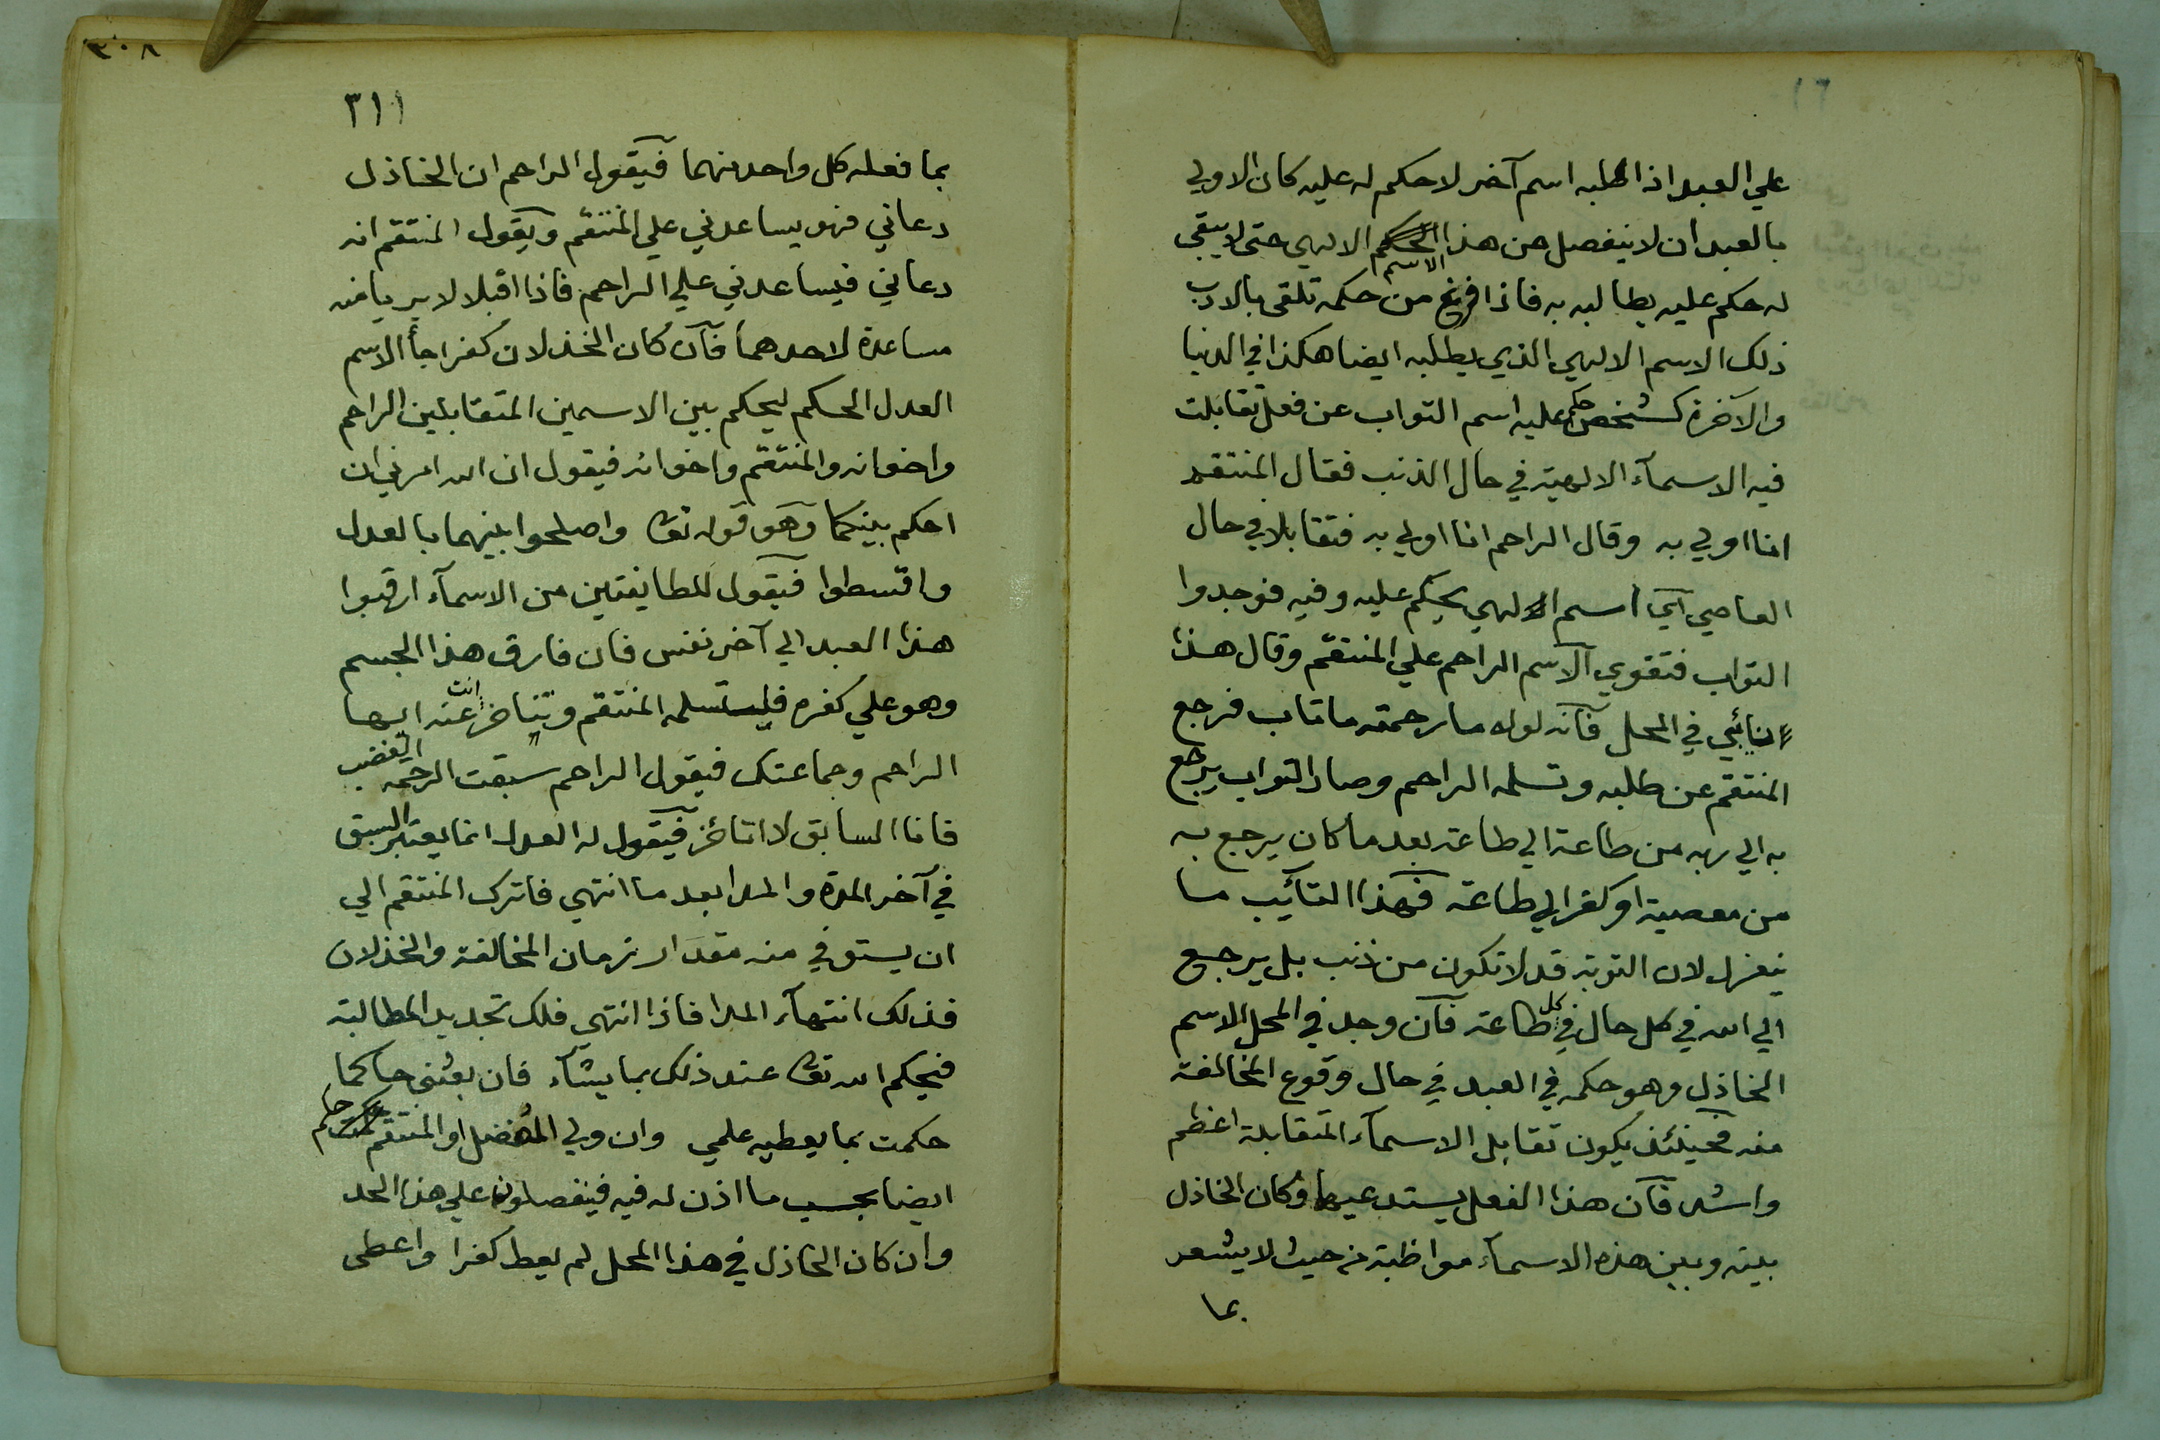 علي العبد اذا طلبه اسم آخر لا حكم له عليه كان الاولي
بالعبد ان لا ينفصل من هذا الاسم الالهي حتى لا يبقى
له حكم عليه يطالبه به فاذا فرغ من حكمه تلقى بالادب
ذلك الاسم الالهي الذي يطلبه ايضا هكذا في الدنيا
والآخرة كشخص حكم عليه اسم التواب عن فعل تقابلت
فيه الاسمآء الالهية في حال الذنب فقال المنتقم
انا اولي به وقال الراحم انا اولي به فتقابلا في حال
العاصي اي اسم الهي يحكم عليه وفيه فوجدوا
التواب فتقوي الاسم الراحم علي المنتقم وقال هذا
نائبي في المحل فانه لولا ما رحمته ما تاب فرجع
المنتقم عن طلبه وتسلمه الراحم وصار التواب يرجع
به الي ربه من طاعة الي طاعة بعد ما كان يرجع به
من معصية او كفر الي طاعة فهذا التآئب ما
ينعزل لان التوبة قد لا تكون من ذنب بل يرجع
الي الله في كل حال في كل طاعة فان وجد في المحل الاسم
الخاذل وهو حكمه في العبد في حال وقوع المخالفة
منه فحينئذ يكون تقابل الاسمآء المتقابلة اعظم
واشد فان هذا الفعل يستدعيها وكان الخاذل
بينه وبين هذه الاسمآء مواظبة من حيث لا يشعر
بما
٣٠٨
٣١١
بما فعله كل واحد منهما فيقول الراحم ان الخاذل
دعاني فهو يساعدني علي المنتقم ويقول المنتقم انه
دعاني فيساعدني علي الراحم فاذا اقبلا لا يريا منه
مساعدة لاحدهما فان كان الخذلان كفرا جآ الاسم
العدل الحكم ليحكم بين الاسمين المتقابلين الراحم
واخوانه والمنتقم واخوانه فيقول ان الله امرني ان
احكم بينكما وهو قوله تعا واصلحوا بينهما بالعدل
واقسطوا فيقول للطايفتين من الاسمآء ارقبوا
هذا العبد الي آخر نفس فان فارق هذا الجسم
وهو علي كفره فليتسلمه المنتقم وتتاخر انت عنه ايها
الراحم وجماعتك فيقول الراحم سبقت الرحمة الغضب
فانا السابق لا اتاخر فيقول له العدل انما يعتبر السبق
في آخر المدة والمدا بعد ما انتهي فاترك المنتقم الي
ان يستوفي منه مقدار زمان المخالفة والخذلان
فذلك انتهآء المدا فاذا انتهي فلك تجديد المطالبة
فيحكم الله تعا عند ذلك بما يشآء فان بعثني حاكما
حكمت بما يعطيه علمي وان ولي المفضل او المنتقم حكم
ايضا بحسب ما اذن له فيه فينفصلون علي هذا الحد
وان كان الخاذل في هذا المحل لم يعط كفرا واعطى